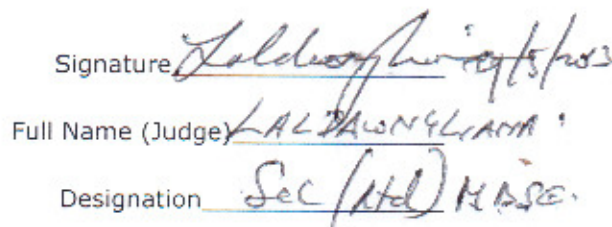 Signature
Full Name (Judge) LALDAWNGLIANA
Designation Sec (Rtd) MBSE.